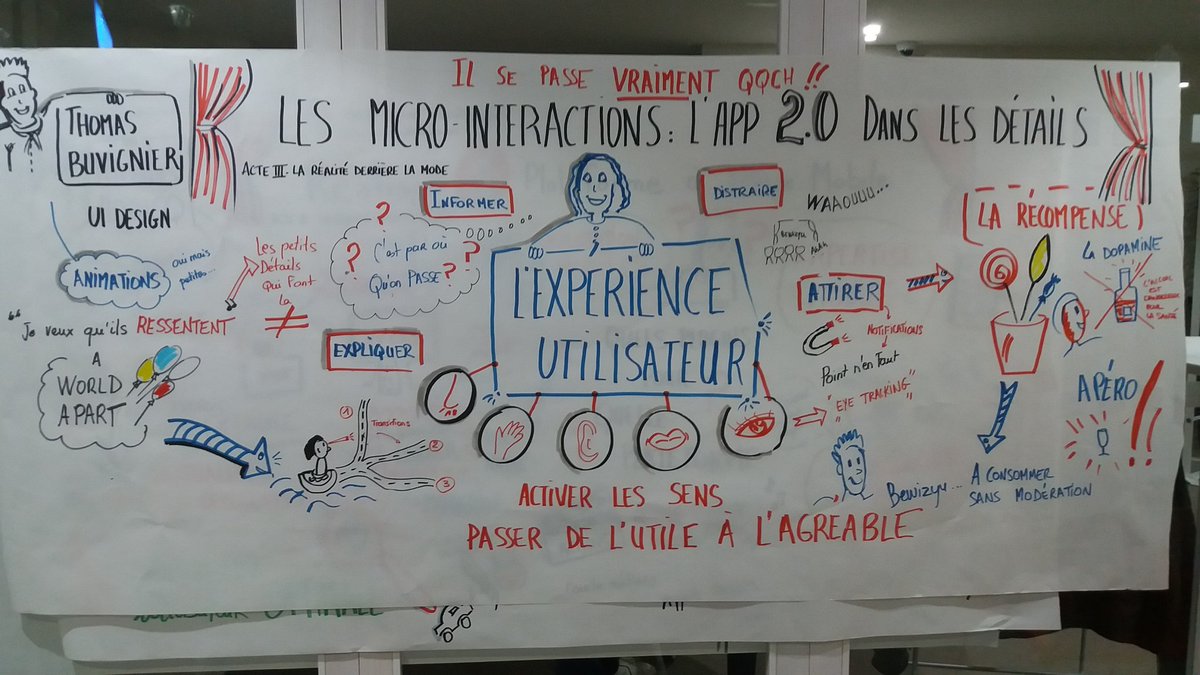 IL SE PASSE VRAIMENT QQCH !!
LES MICRO-INTERACTIONS : L'APP 2.0 DANS LES DÉTAILS
THOMAS
BUVIGNIER
ACTE III - LA RÉALITÉ DERRIÈRE LA MODE
UI DESIGN
ANIMATIONS
oui mais
petites...
Les petits
Détails
qui font
la
≠
" Je veux qu'ils RESSENTENT
A
WORLD
APART
INFORMER
? C'est par où
Qu'on PASSE ? ?
?
EXPLIQUER
1
Transitions
2
3
L'EXPÉRIENCE
UTILISATEUR
ACTIVER LES SENS
PASSER DE L'UTILE À L'AGREABLE
DISTRAIRE
WAAOUUU...
ATTIRER
NOTIFICATIONS
Point n'en Faut
"EYE TRACKING"
LA RÉCOMPENSE
LA DOPAMINE
L'ALCOOL
EST
DANGEREUX
POUR
LA SANTÉ
APÉRO !!
A CONSOMMER
SANS MODÉRATION